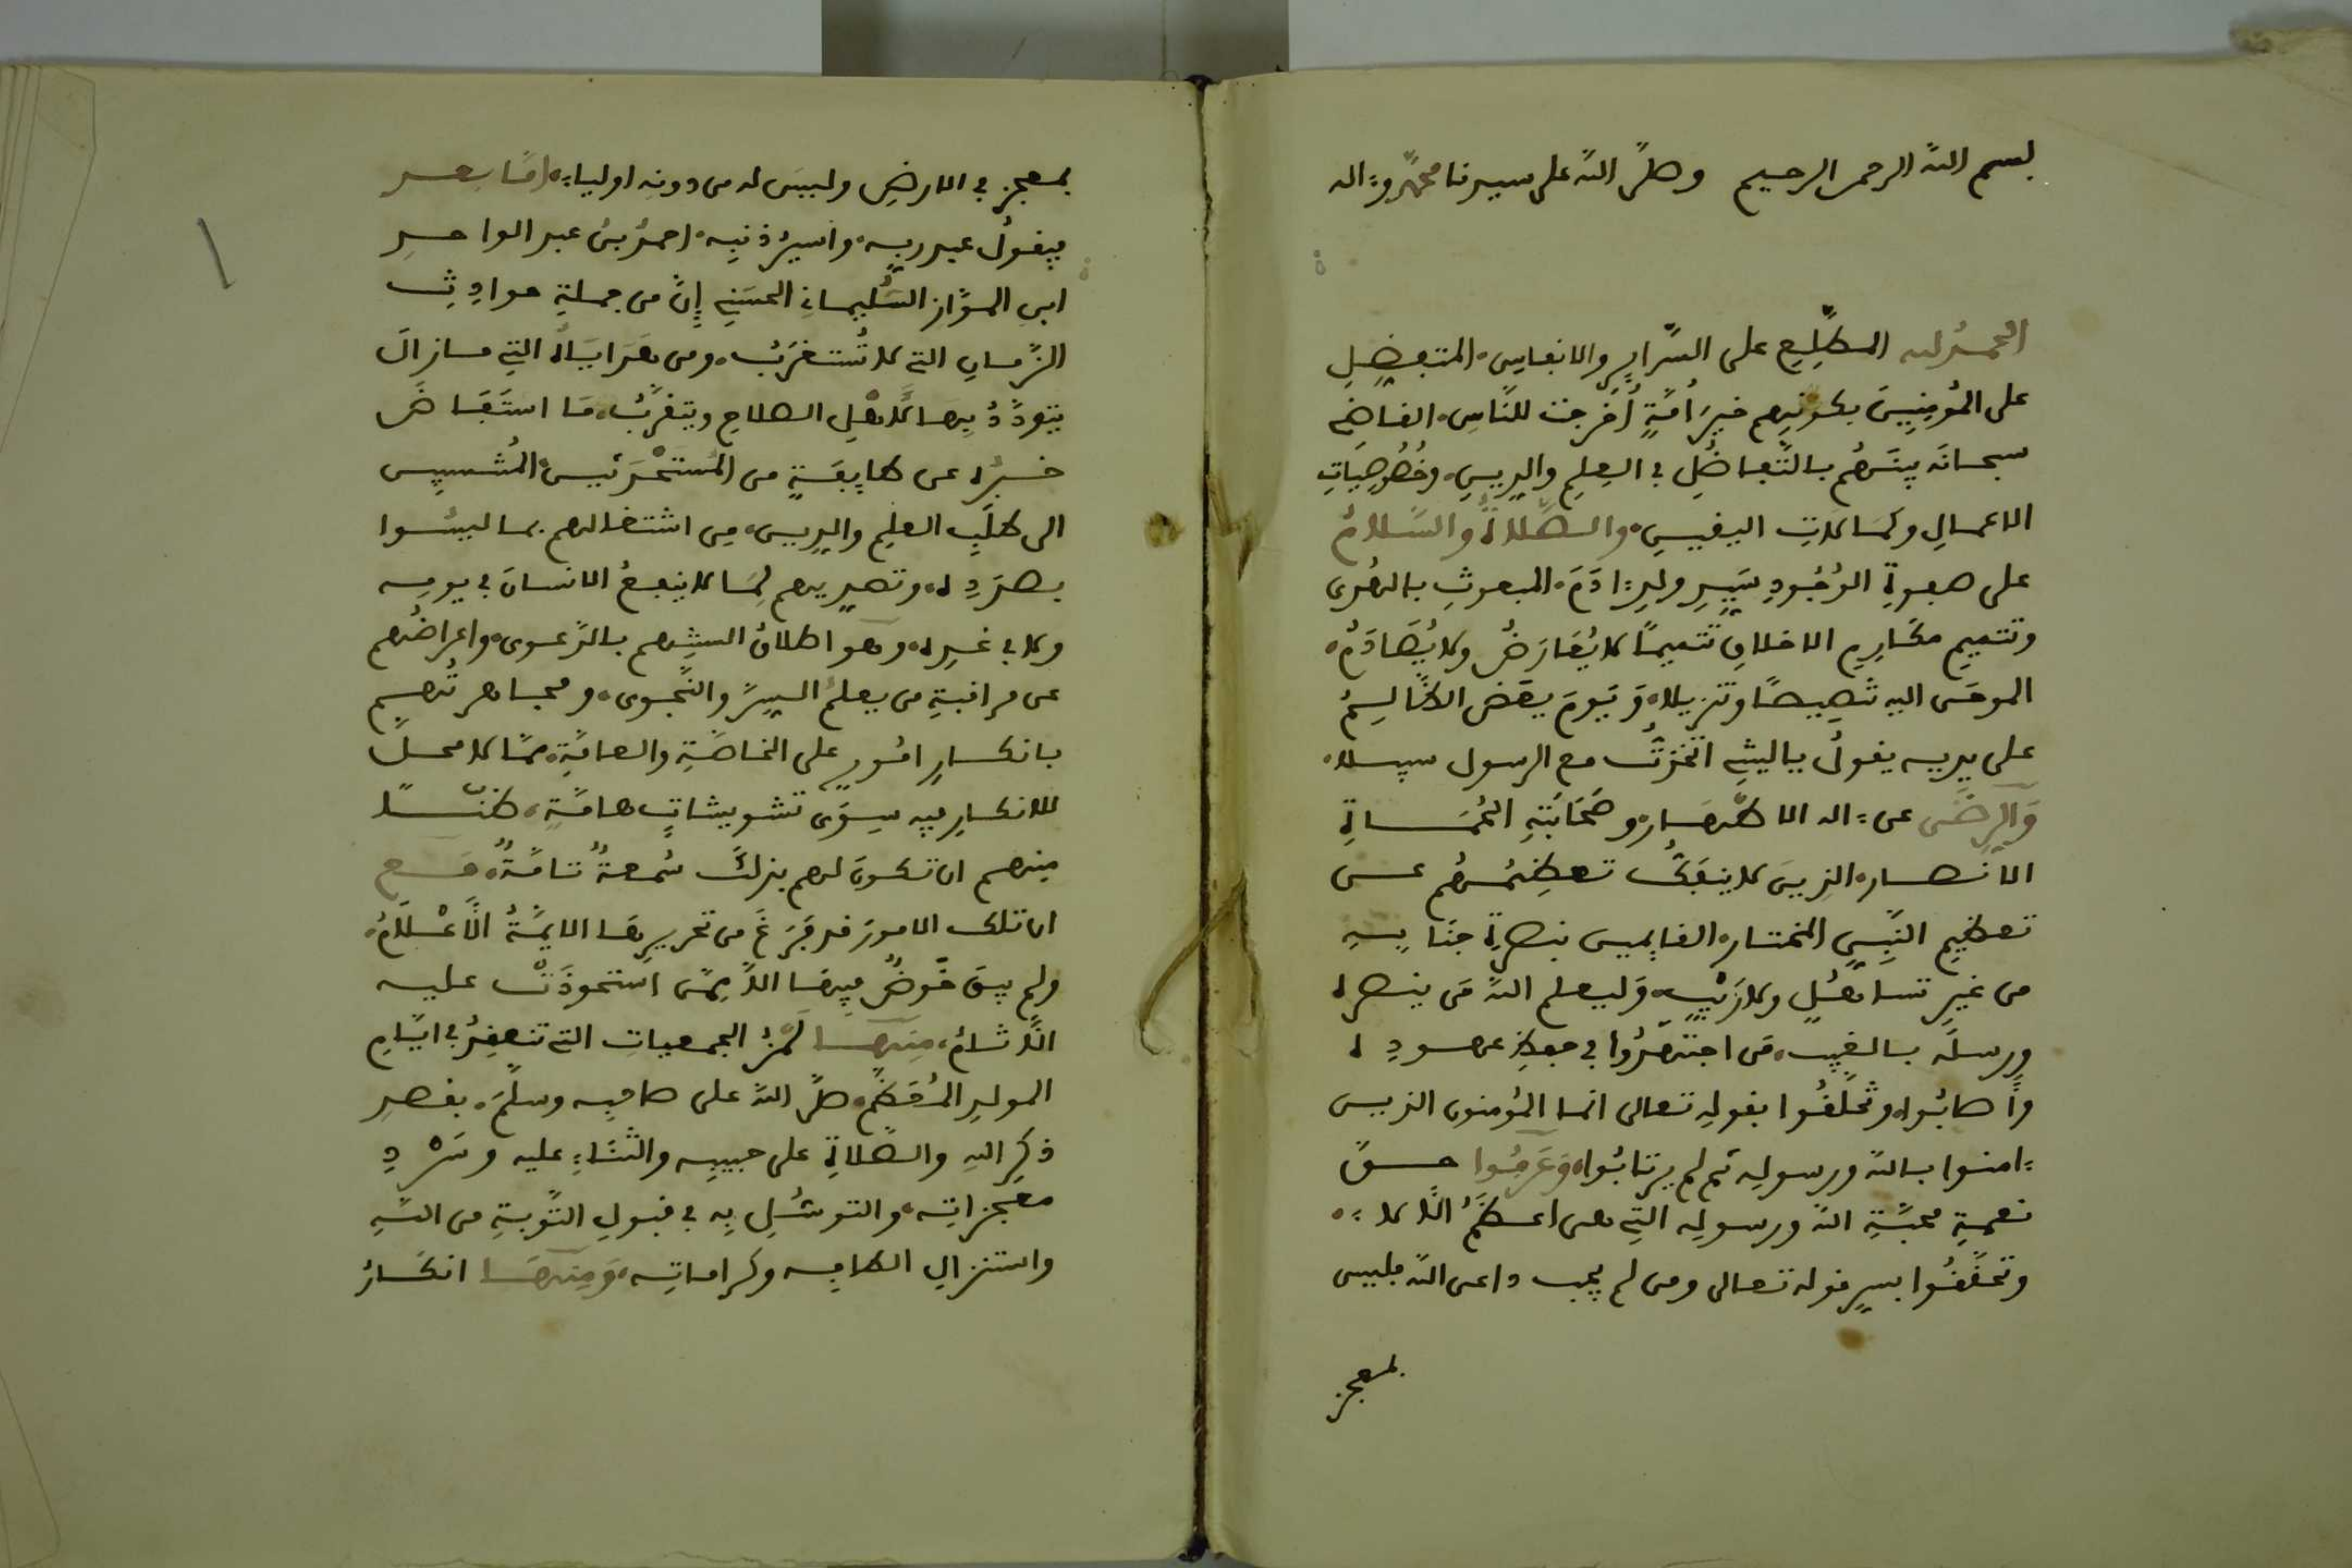 بسم الله الرحمن الرحيم وصلى الله على سيدنا محمد وءاله
الحمد لله المطلع على السراير والانفاس، المتفضل
على المؤمنين بكونهم خير أمة أخرجت للناس، القاضي
سبحانه بينهم بالتفاضل في العلم والدين، وخصوصيات
الاعمال وكمالات اليقين، والصلاة والسلام
على صفوة الوجود سيد ولد ءادم، المبعوث بالهدى
وتتميم مكارم الاخلاق تتميما لا يعارض ولا يصادم،
الموحى اليه تنصيصا وتنزيلا، ويوم يعض الظالم
على يديه يقول ياليتني اتخذت مع الرسول سبيلا،
والرضى عن ءاله الاطهار، وصحابته الحماة
الانصار، الذين لا ينفك تعظيمهم عن
تعظيم النبي المختار، القايمين بنصرة جنابه
من غير تساهل ولا ريب، وليعلم الله من ينصره
ورسله بالغيب، من اجتهدوا في حفظ عهوده
وأصابوا، وتخلقوا بقوله تعالى انما المؤمنون الذين
ءامنوا بالله ورسوله ثم لم يرتابوا، وعرفوا حق
نعمة محبة الله ورسوله التي هي اعظم الالاء،
وتحققوا بسر قوله تعالى ومن لم يجب داعي الله فليس
بمعجز
بمعجز في الارض وليس له من دونه اولياء، اما بعد
فيقول عبد ربه، واسير ذنبه، احمد بن عبد الواحد
ابن المواز السليماني الحسني إن من جملة حوادث
الزمان التي لا تستغرب، ومن هداياه التي مازال
يتودد بها لأهل الصلاح ويتقرب، ما استفاض
خبره عن طايفة من المستحدثين، المنتسبين
الى طلب العلم والدين، من اشتغالهم بما ليسوا
بصدده، وتصديهم لما لا ينفع الانسان في يومه
ولا في غده، وهو اطلاق السنتهم بالدعوى، واعراضهم
عن مراقبة من يعلم السر والنجوى، ومجاهرتهم
بانكار امور على الخاصة والعامة، مما لا محل
للانكار فيه سوى تشويشات هامة، ظنا
منهم ان تكون لهم بذلك سمعة تامة، مع
ان تلك الامور قد فرغ من تحريرها الايمة الأعلام،
ولم يبق خوض فيها الا ممن استحوذت عليه
الاثام، منها لمز الجمعيات التي تنعقد في ايام
المولد المعظم، صلى الله على صاحبه وسلم، بقصد
ذكر الله والصلاة على حبيبه والثناء عليه وسرد
معجزاته، والتوسل به في قبول التوبة من الله
واستنزال الطافه وكراماته، ومنها انكار